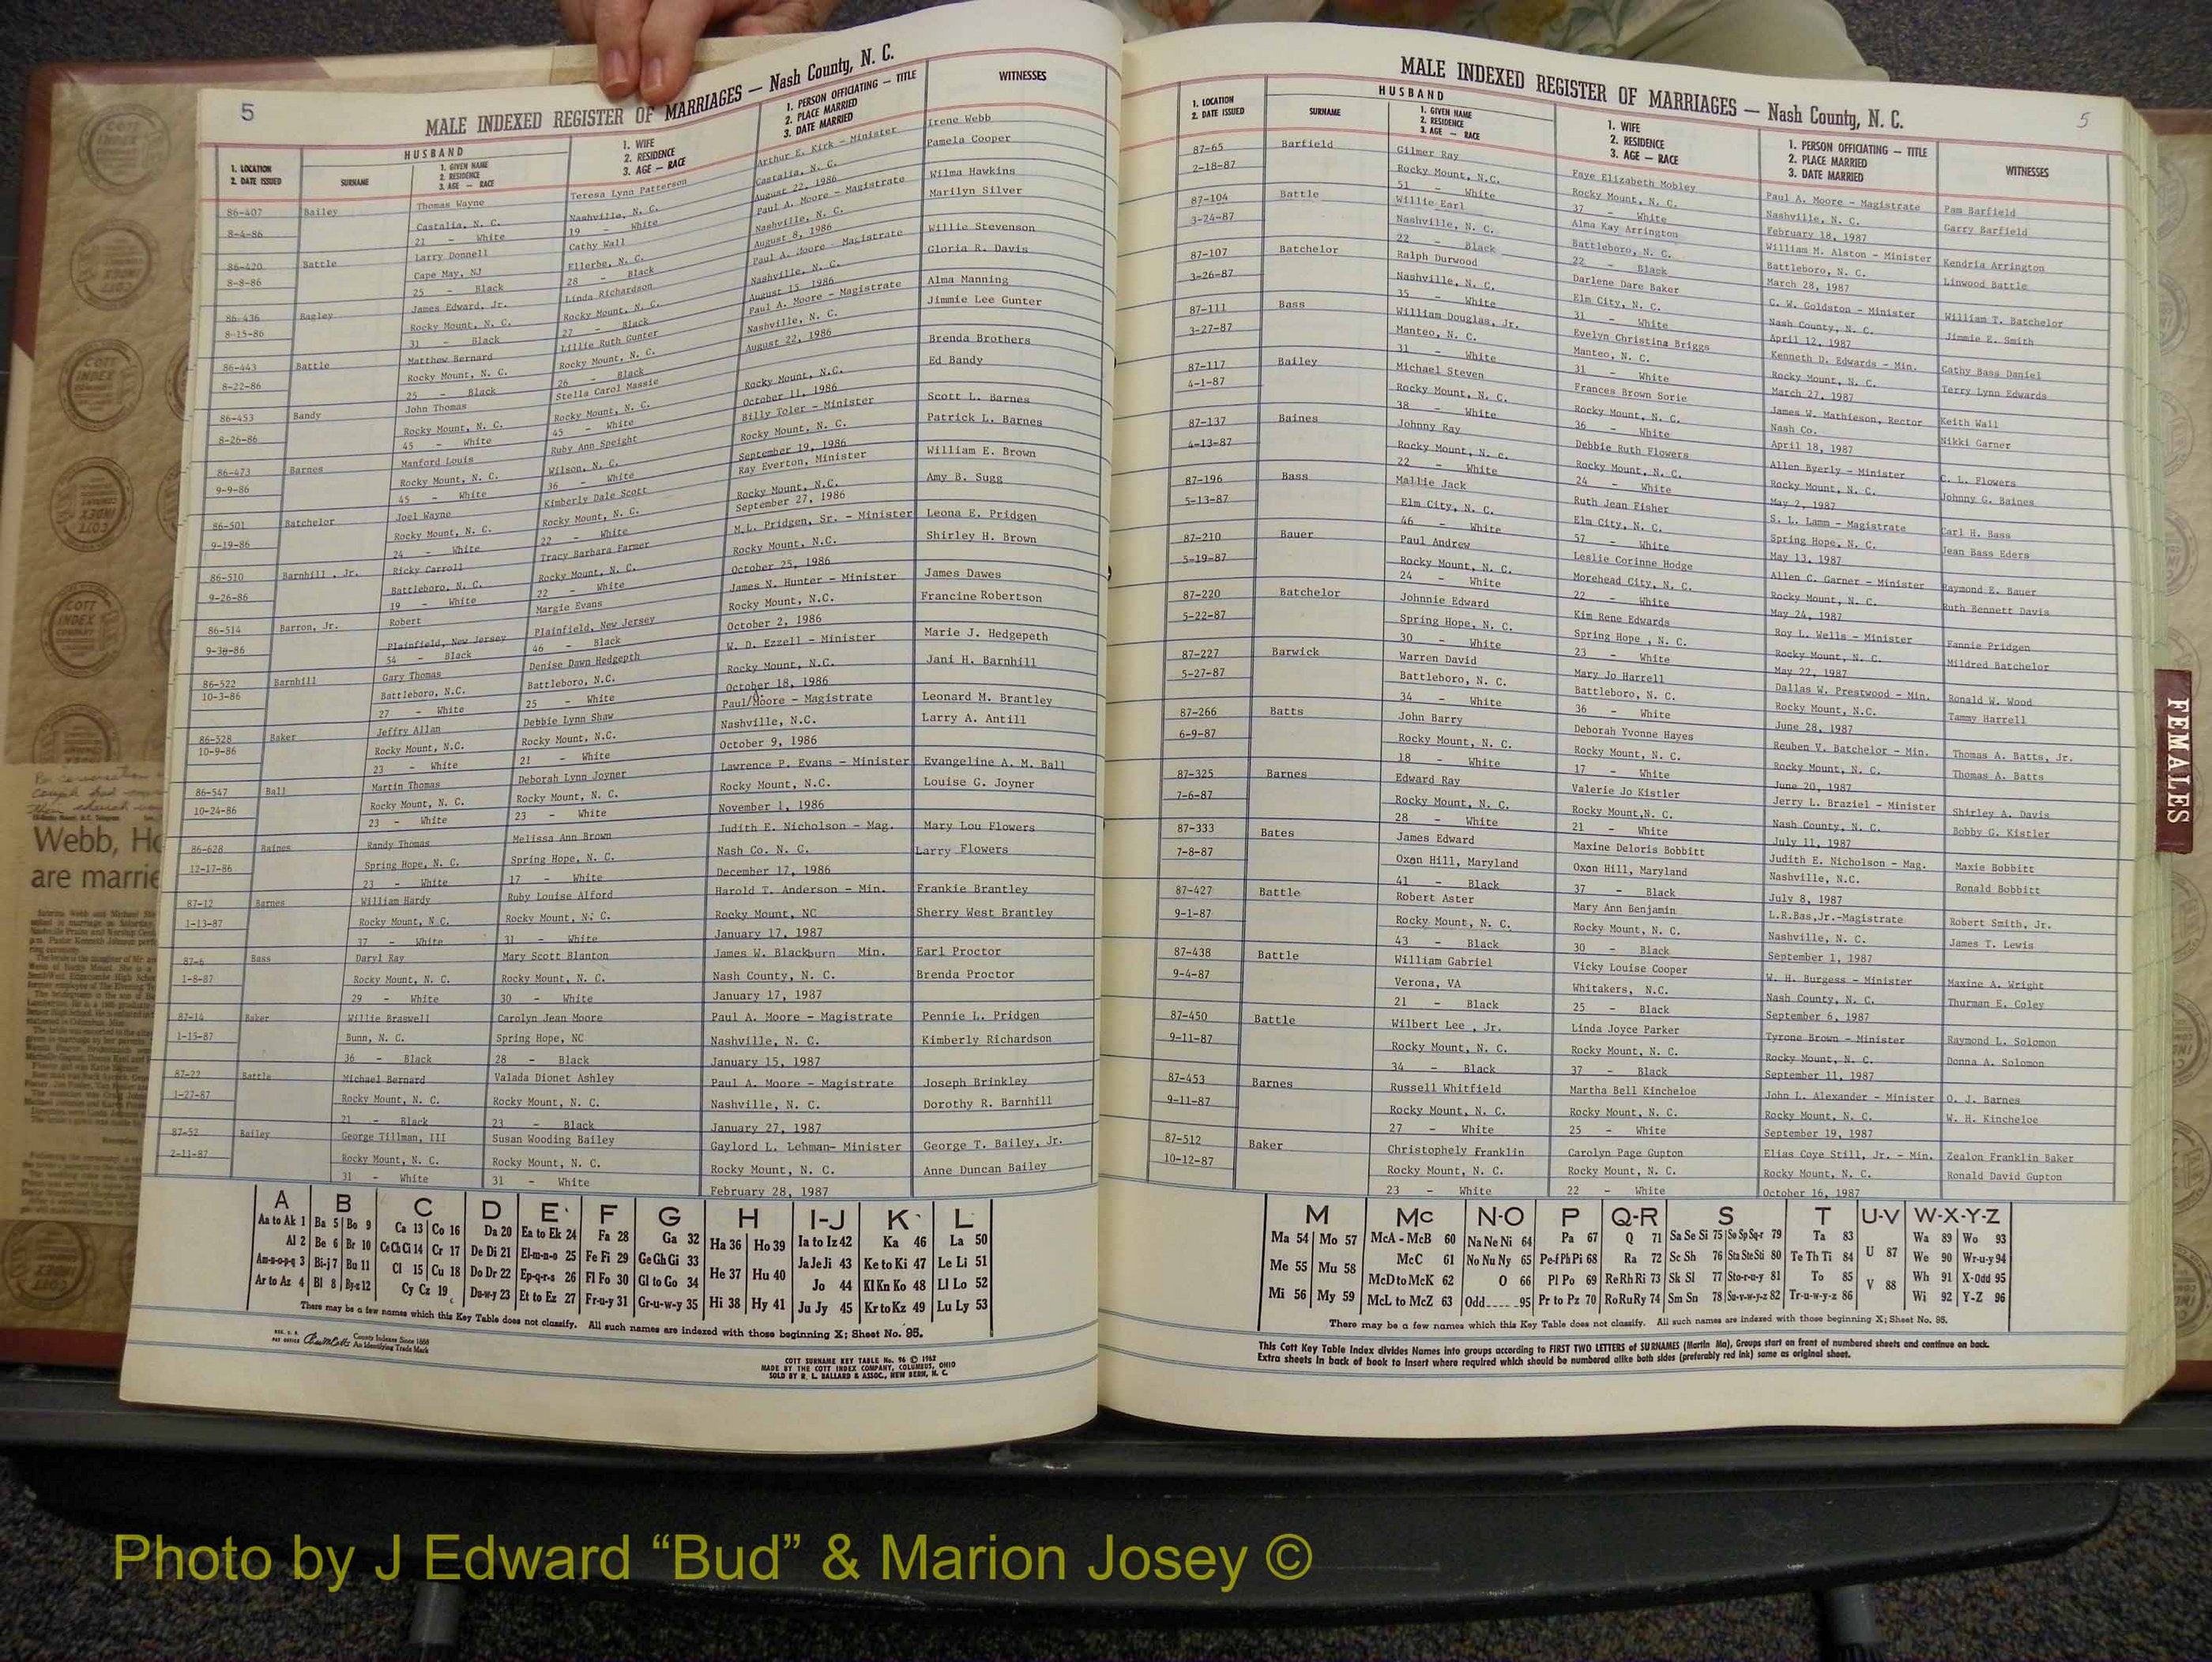 5
MALE INDEXED REGISTER OF MARRIAGES — Nash County, N. C.
1. LOCATION
2. DATE ISSUED
HUSBAND
SURNAME
1. GIVEN NAME
2. RESIDENCE
3. AGE — RACE
1. WIFE
2. RESIDENCE
3. AGE — RACE
1. PERSON OFFICIATING — TITLE
2. PLACE MARRIED
3. DATE MARRIED
WITNESSES
86-407 Bailey Thomas Wayne Teresa Lynn Patterson Arthur E. Kirk - Minister Irene Webb
8-4-86 Castalia, N. C. Nashville, N. C. Castalia, N. C. Pamela Cooper
21 - White 19 - White August 22, 1986
86-420 Battle Larry Donnell Cathy Wall Paul A. Moore - Magistrate Wilma Hawkins
8-8-86 Cape May, NJ Ellerbe, N. C. Nashville, N. C. Marilyn Silver
25 - Black 28 - Black August 8, 1986
86-436 Bagley James Edward, Jr. Linda Richardson Paul A. Moore - Magistrate Willie Stevenson
8-15-86 Rocky Mount, N. C. Rocky Mount, N. C. Nashville, N. C. Gloria R. Davis
31 - Black 27 - Black August 15 1986
86-443 Battle Matthew Bernard Lillie Ruth Gunter Paul A. Moore - Magistrate Alma Manning
8-22-86 Rocky Mount, N. C. Rocky Mount, N. C. Nashville, N. C. Jimmie Lee Gunter
25 - Black 26 - Black August 22, 1986
86-453 Bandy John Thomas Stella Carol Massie Brenda Brothers
8-26-86 Rocky Mount, N. C. Rocky Mount, N. C. Rocky Mount, N.C. Ed Bandy
45 - White 45 - White October 11, 1986
86-473 Barnes Manford Louis Ruby Ann Speight Billy Toler - Minister Scott L. Barnes
9-9-86 Rocky Mount, N. C. Wilson, N. C. Rocky Mount, N. C. Patrick L. Barnes
45 - White 36 - White September 19, 1986
86-501 Batchelor Joel Wayne Kimberly Dale Scott Ray Everton, Minister William E. Brown
9-19-86 Rocky Mount, N. C. Rocky Mount, N. C. Rocky Mount, N.C. Amy B. Sugg
24 - White 22 - White September 27, 1986
86-510 Barnhill , Jr. Ricky Carroll Tracy Barbara Farmer M.L. Pridgen, Sr. - Minister Leona E. Pridgen
9-26-86 Battleboro, N. C. Rocky Mount, N. C. Rocky Mount, N.C. Shirley H. Brown
19 - White 22 - White October 25, 1986
86-514 Barron, Jr. Robert Margie Evans James N. Hunter - Minister James Dawes
9-30-86 Plainfield, New Jersey Plainfield, New Jersey Rocky Mount, N.C. Francine Robertson
54 - Black 46 - Black October 2, 1986
86-522 Barnhill Gary Thomas Denise Dawn Hedgepth W. D. Ezzell - Minister Marie J. Hedgepeth
10-3-86 Battleboro, N.C. Battleboro, N.C. Rocky Mount, N.C. Jani H. Barnhill
27 - White 25 - White October 18, 1986
86-528 Baker Jeffry Allan Debbie Lynn Shaw Paul/Moore - Magistrate Leonard M. Brantley
10-9-86 Rocky Mount, N.C. Rocky Mount, N.C. Nashville, N.C. Larry A. Antill
23 - White 21 - White October 9, 1986
86-547 Ball Martin Thomas Deborah Lynn Joyner Lawrence P. Evans - Minister Evangeline A. M. Ball
10-24-86 Rocky Mount, N. C. Rocky Mount, N. C. Rocky Mount, N.C. Louise G. Joyner
23 - White 23 - White November 1, 1986
86-628 Baines Randy Thomas Melissa Ann Brown Judith E. Nicholson - Mag. Mary Lou Flowers
12-17-86 Spring Hope, N. C. Spring Hope, N. C. Nash Co. N. C. Larry Flowers
23 - White 17 - White December 17, 1986
87-12 Barnes William Hardy Ruby Louise Alford Harold T. Anderson - Min. Frankie Brantley
1-13-87 Rocky Mount, N.C. Rocky Mount, N. C. Rocky Mount, NC Sherry West Brantley
37 - White 31 - White January 17, 1987
87-6 Bass Daryl Ray Mary Scott Blanton James W. Blackburn Min. Earl Proctor
1-8-87 Rocky Mount, N. C. Rocky Mount, N. C. Nash County, N. C. Brenda Proctor
29 - White 30 - White January 17, 1987
87-14 Baker Willie Braswell Carolyn Jean Moore Paul A. Moore - Magistrate Pennie L. Pridgen
1-15-87 Bunn, N. C. Spring Hope, NC Nashville, N. C. Kimberly Richardson
36 - Black 28 - Black January 15, 1987
87-22 Battle Michael Bernard Valada Dionet Ashley Paul A. Moore - Magistrate Joseph Brinkley
1-27-87 Rocky Mount, N. C. Rocky Mount, N. C. Nashville, N. C. Dorothy R. Barnhill
21 - Black 23 - Black January 27, 1987
87-52 Bailey George Tillman, III Susan Wooding Bailey Gaylord L. Lehman- Minister George T. Bailey, Jr.
2-11-87 Rocky Mount, N. C. Rocky Mount, N. C. Rocky Mount, N. C. Anne Duncan Bailey
31 - White 31 - White February 28, 1987
A B C D E F G H I-J K L
Aa to Ak 1 Ba 5 Bo 9 Ca 13 Co 16 Da 20 Ea to Ek 24 Fa 28 Ga 32 Ha 36 Ho 39 Ia to Iz 42 Ka 46 La 50
Al 2 Be 6 Br 10 Ce Ch Ci 14 Cr 17 De Di 21 El-m-n-o 25 Fe Fi 29 Ge Gh Gi 33 He 37 Hu 40 Ja Je Ji 43 Ke to Ki 47 Le Li 51
Am-n-o-p-q 3 Bi-j 7 Bu 11 Cl 15 Cu 18 Do Dr 22 Ep-q-r-s 26 Fl Fo 30 Gl to Go 34 Jo 44 Kl Kn Ko 48 Ll Lo 52
Ar to Az 4 Bl 8 By-z 12 Cy Cz 19 Du-w-y 23 Et to Ez 27 Fr-u-y 31 Gr-u-w-y 35 Hi 38 Hy 41 Ju Jy 45 Kr to Kz 49 Lu Ly 53
There may be a few names which this Key Table does not classify. All such names are indexed with those beginning X; Sheet No. 95.
County Indexes Since 1888
An Identifying Trade Mark
COTT SURNAME KEY TABLE No. 96 © 1962
MADE BY THE COTT INDEX COMPANY, COLUMBUS, OHIO
SOLD BY R. L. BALLARD & ASSOC., NEW BERN, N. C.
MALE INDEXED REGISTER OF MARRIAGES — Nash County, N. C.
5
1. LOCATION
2. DATE ISSUED
HUSBAND
SURNAME
1. GIVEN NAME
2. RESIDENCE
3. AGE — RACE
1. WIFE
2. RESIDENCE
3. AGE — RACE
1. PERSON OFFICIATING — TITLE
2. PLACE MARRIED
3. DATE MARRIED
WITNESSES
87-65 Barfield Gilmer Ray Faye Elizabeth Mobley Paul A. Moore - Magistrate Pam Barfield
2-18-87 Rocky Mount, N.C. Rocky Mount, N. C. Nashville, N. C. Garry Barfield
51 - White 37 - White February 18, 1987
87-104 Battle Willie Earl Alma Kay Arrington William M. Alston - Minister Kendria Arrington
3-24-87 Nashville, N. C. Battleboro, N. C. Battleboro, N. C. Linwood Battle
22 - Black 22 - Black March 28, 1987
87-107 Batchelor Ralph Durwood Darlene Dare Baker C. W. Goldston - Minister William T. Batchelor
3-26-87 Nashville, N. C. Elm City, N. C. Nash County, N. C. Jimmie E. Smith
35 - White 31 - White April 12, 1987
87-111 Bass William Douglas, Jr. Evelyn Christina Briggs Kenneth D. Edwards - Min. Cathy Bass Daniel
3-27-87 Manteo, N. C. Manteo, N. C. Rocky Mount, N. C. Terry Lynn Edwards
31 - White 31 - White March 27, 1987
87-117 Bailey Michael Steven Frances Brown Sorie James W. Mathieson, Rector Keith Wall
4-1-87 Rocky Mount, N. C. Rocky Mount, N. C. Nash Co. Nikki Garner
38 - White 36 - White April 18, 1987
87-137 Baines Johnny Ray Debbie Ruth Flowers Allen Byerly - Minister C. L. Flowers
4-13-87 Rocky Mount, N. C. Rocky Mount, N. C. Rocky Mount, N. C. Johnny G. Baines
22 - White 24 - White May 2, 1987
87-196 Bass Mallie Jack Ruth Jean Fisher S. L. Lamm - Magistrate Carl H. Bass
5-13-87 Elm City, N. C. Elm City, N. C. Spring Hope, N. C. Jean Bass Eders
46 - White 57 - White May 13, 1987
87-210 Bauer Paul Andrew Leslie Corinne Hodge Allen C. Garner - Minister Raymond E. Bauer
5-19-87 Rocky Mount, N. C. Morehead City, N. C. Rocky Mount, N. C. Ruth Bennett Davis
24 - White 22 - White May 24, 1987
87-220 Batchelor Johnnie Edward Kim Rene Edwards Roy L. Wells - Minister Fannie Pridgen
5-22-87 Spring Hope, N. C. Spring Hope , N. C. Rocky Mount, N. C. Mildred Batchelor
30 - White 23 - White May 22, 1987
87-227 Barwick Warren David Mary Jo Harrell Dallas W. Prestwood - Min. Ronald W. Wood
5-27-87 Battleboro, N. C. Battleboro, N. C. Rocky Mount, N.C. Tammy Harrell
34 - White 36 - White June 28, 1987
87-266 Batts John Barry Deborah Yvonne Hayes Reuben V. Batchelor - Min. Thomas A. Batts, Jr.
6-9-87 Rocky Mount, N. C. Rocky Mount, N. C. Rocky Mount, N. C. Thomas A. Batts
18 - White 17 - White June 20, 1987
87-325 Barnes Edward Ray Valerie Jo Kistler Jerry L. Braziel - Minister Shirley A. Davis
7-6-87 Rocky Mount, N. C. Rocky Mount,N. C. Nash County, N. C. Bobby G. Kistler
28 - White 21 - White July 11, 1987
87-333 Bates James Edward Maxine Deloris Bobbitt Judith E. Nicholson - Mag. Maxie Bobbitt
7-8-87 Oxon Hill, Maryland Oxon Hill, Maryland Nashville, N.C. Ronald Bobbitt
41 - Black 37 - Black July 8, 1987
87-427 Battle Robert Aster Mary Ann Benjamin L.R.Bas,Jr.-Magistrate Robert Smith, Jr.
9-1-87 Rocky Mount, N. C. Rocky Mount, N. C. Nashville, N. C. James T. Lewis
43 - Black 30 - Black September 1, 1987
87-438 Battle William Gabriel Vicky Louise Cooper W. H. Burgess - Minister Maxine A. Wright
9-4-87 Verona, VA Whitakers, N.C. Nash County, N. C. Thurman E. Coley
21 - Black 25 - Black September 6, 1987
87-450 Battle Wilbert Lee , Jr. Linda Joyce Parker Tyrone Brown - Minister Raymond L. Solomon
9-11-87 Rocky Mount, N. C. Rocky Mount, N. C. Rocky Mount, N. C. Donna A. Solomon
34 - Black 37 - Black September 11, 1987
87-453 Barnes Russell Whitfield Martha Bell Kincheloe John L. Alexander - Minister O. J. Barnes
9-11-87 Rocky Mount, N. C. Rocky Mount, N. C. Rocky Mount, N. C. W. H. Kincheloe
27 - White 25 - White September 19, 1987
87-512 Baker Christophely Franklin Carolyn Page Gupton Elias Coye Still, Jr. - Min. Zealon Franklin Baker
10-12-87 Rocky Mount, N. C. Rocky Mount, N. C. Rocky Mount, N. C. Ronald David Gupton
23 - White 22 - White October 16, 1987
M Mc N-O P Q-R S T U-V W-X-Y-Z
Ma 54 Mo 57 McA - McB 60 Na Ne Ni 64 Pa 67 Q 71 Sa Se Si 75 So Sp Sq-r 79 Ta 83 U 87 Wa 89 Wo 93
Me 55 Mu 58 McC 61 No Nu Ny 65 Pe-f Ph Pi 68 Ra 72 Sc Sh 76 Sta Ste Sti 80 Te Th Ti 84 We 90 Wr-u-y 94
McD to McK 62 O 66 Pl Po 69 Re Rh Ri 73 Sk Sl 77 Sto-r-u-y 81 To 85 V 88 Wh 91 X-Odd 95
Mi 56 My 59 McL to McZ 63 Odd 95 Pr to Pz 70 Ro Ru Ry 74 Sm Sn 78 Su-v-w-y-z 82 Tr-u-w-y-z 86 Wi 92 Y-Z 96
There may be a few names which this Key Table does not classify. All such names are indexed with those beginning X; Sheet No. 95.
This Cott Key Table Index divides Names into groups according to FIRST TWO LETTERS of SURNAMES (Martin Ma), Groups start on front of numbered sheets and continue on back.
Extra sheets in back of book to insert where required which should be numbered alike both sides (preferably red ink) same as original sheet.
FEMALES
Webb, Ho
are marrie
COTT
INDEX
Photo by J Edward “Bud” & Marion Josey ©